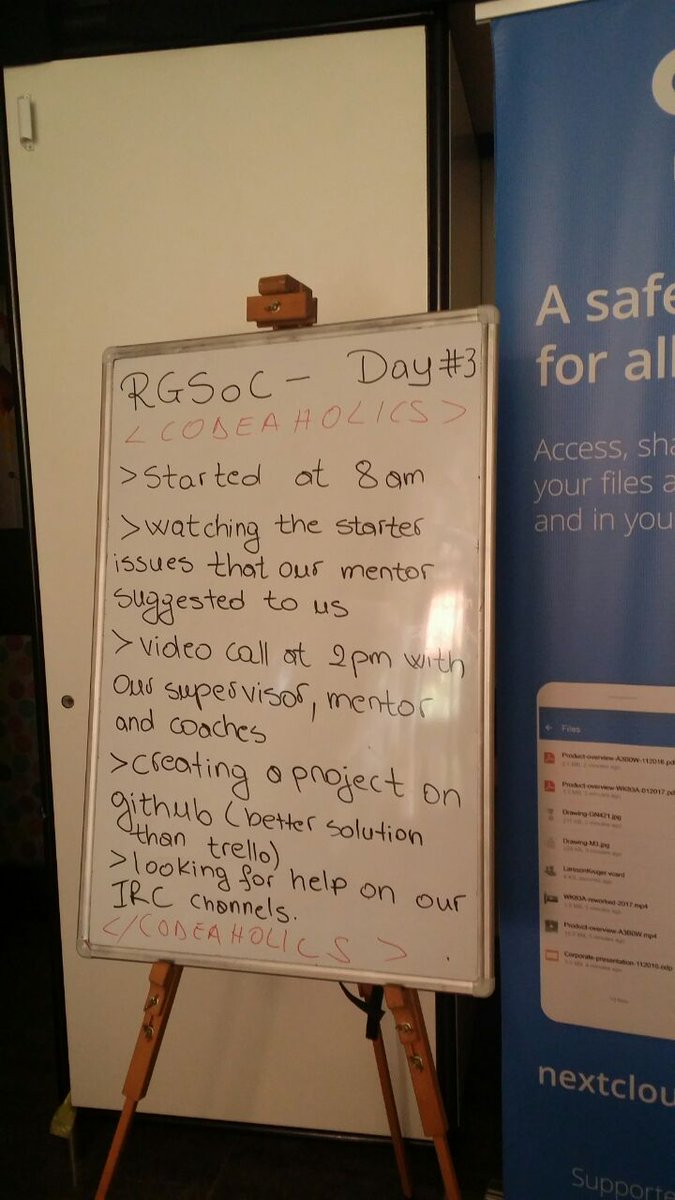 RGSoC - Day #3
<CODEAHOLICS>
>Started at 8am
>watching the starter
issues that our mentor
suggested to us
>video call at 2pm with
our supervisor, mentor
and coaches
>creating a project on
github (better solution
than trello)
>looking for help on our
IRC channels.
</CODEAHOLICS>
A safe
for all
Access, sha
your files a
and in you
Files
Product-overview-A3B0W-112016.pdf
Product-overview-WK83A-012017.pdf
Drawing-GN421.jpg
Drawing-M3.jpg
LarssonKruger-vcard
WK83A-reworked-2017.mp4
Product-overview-A3B0W.mp4
Corporate-presentation-112016.odp
nextclou
Supporte